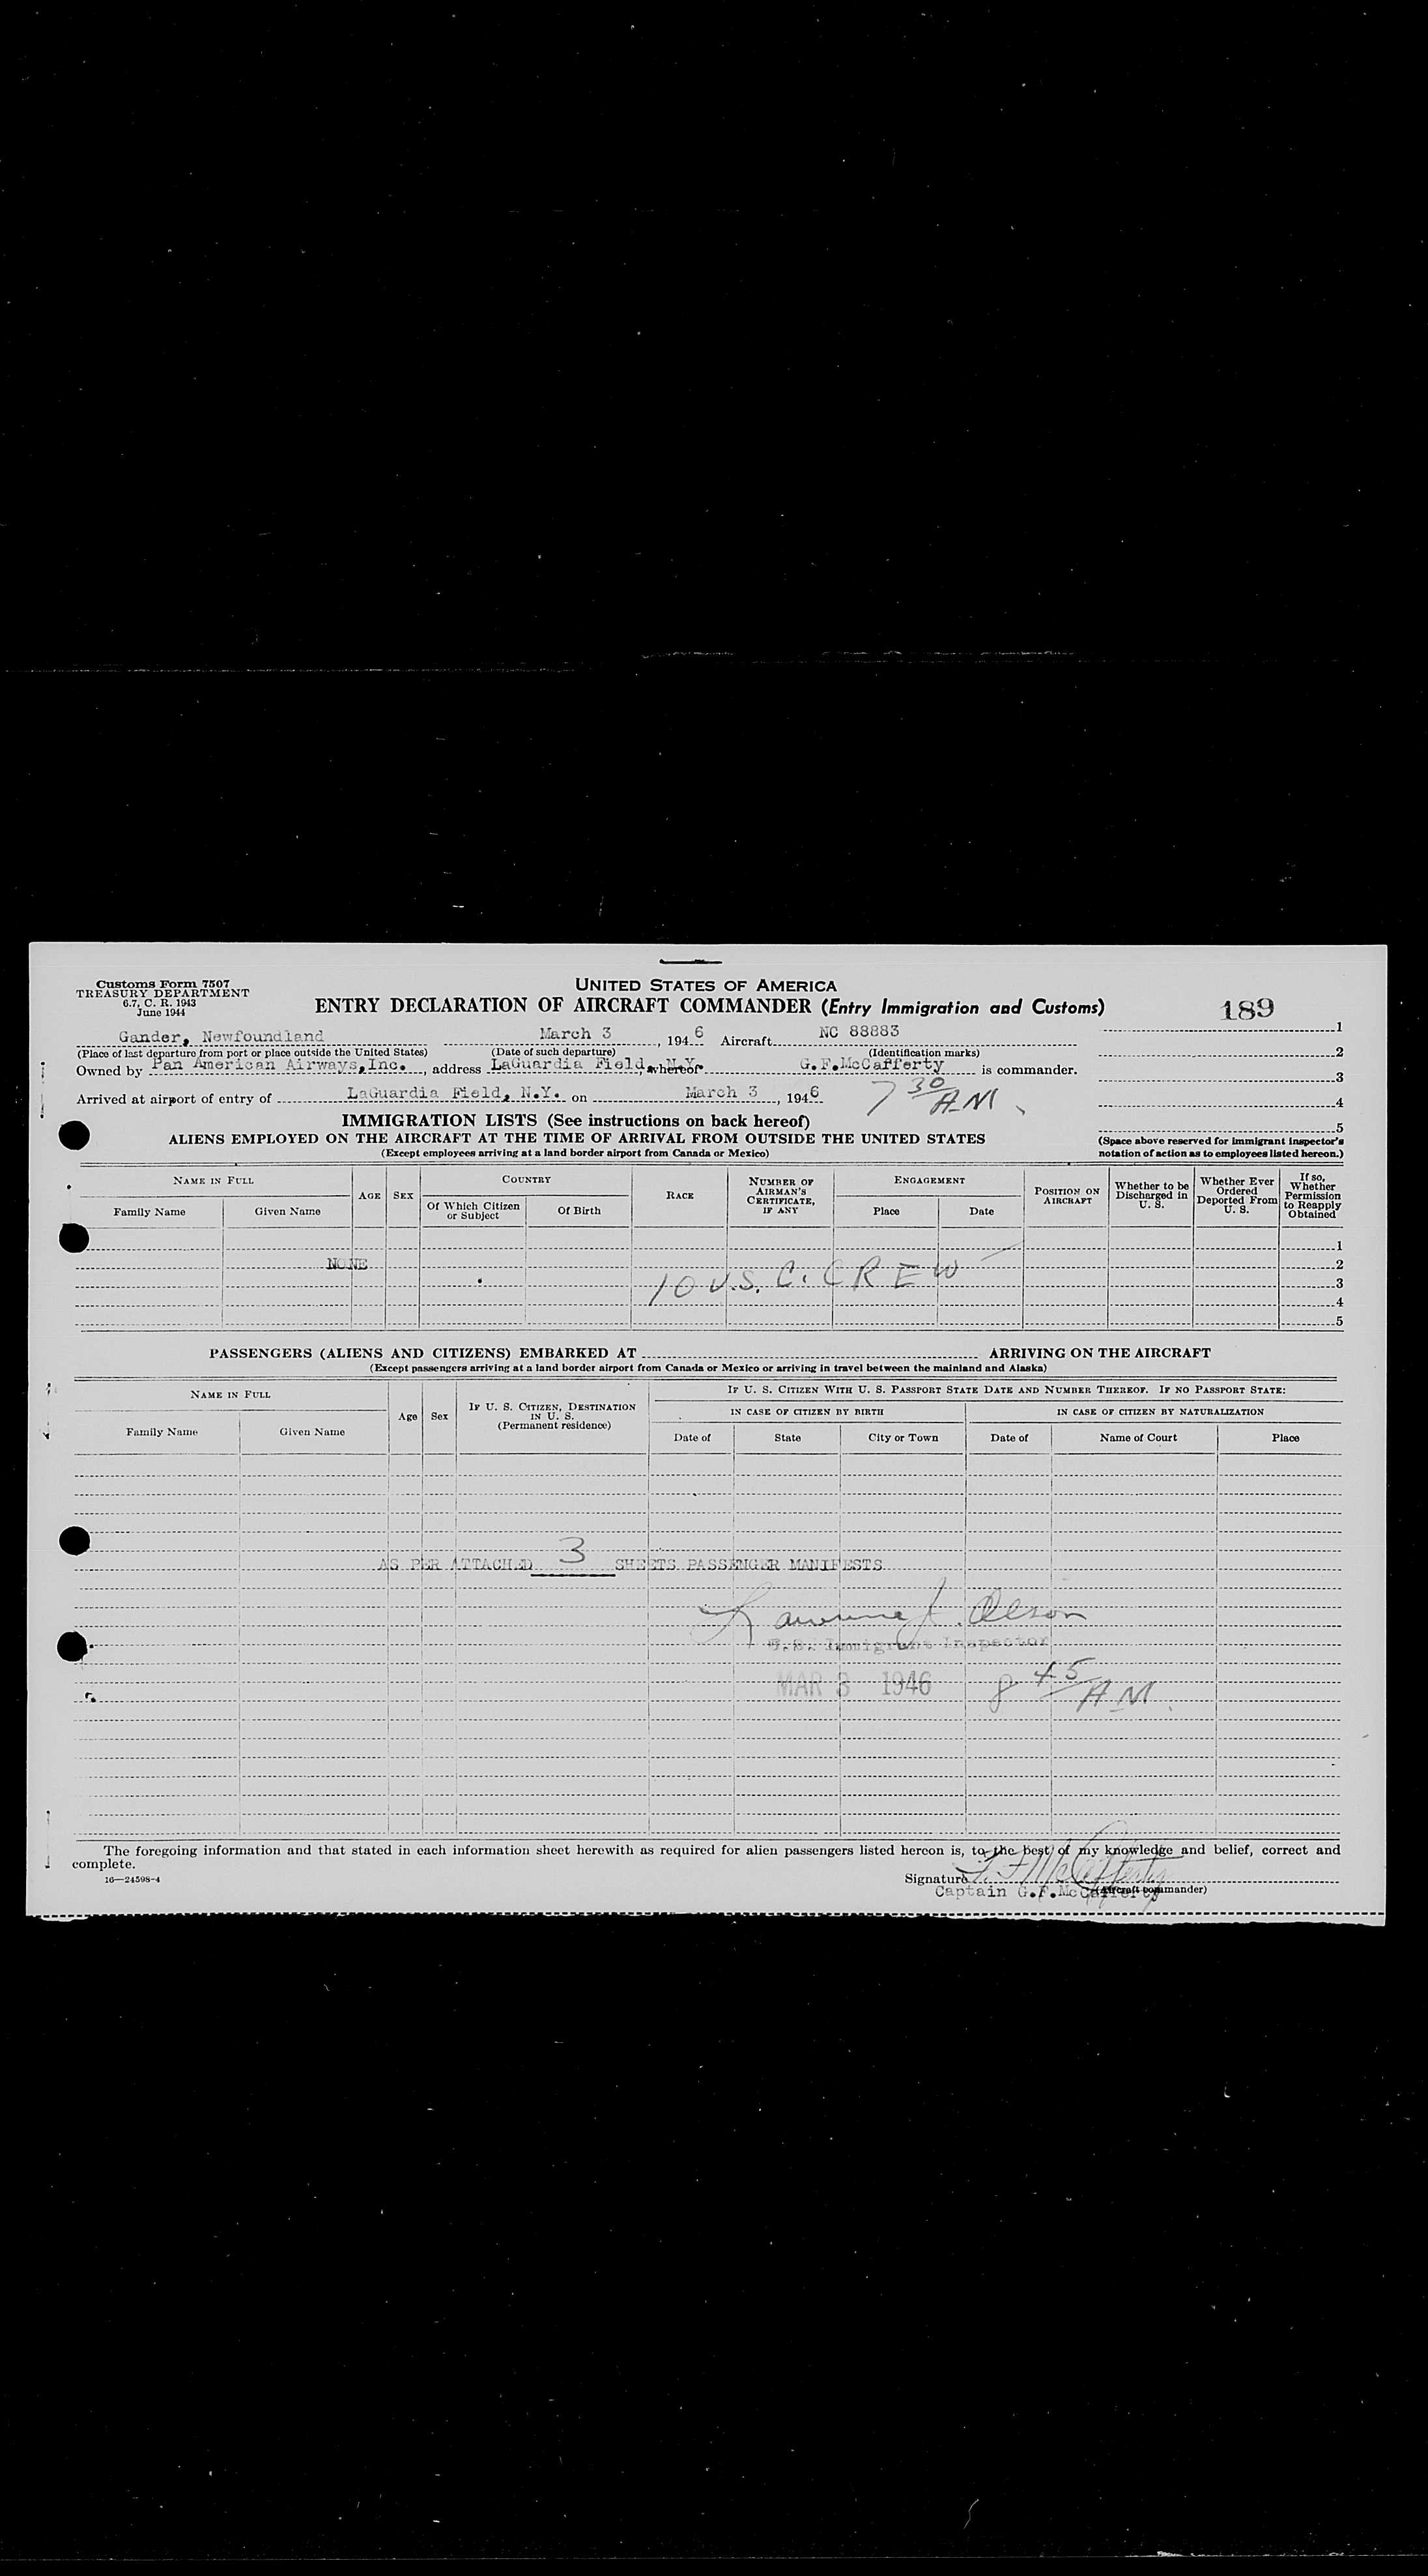 Customs Form 7507
TREASURY DEPARTMENT
6.7, C. R. 1943
June 1944
UNITED STATES OF AMERICA
ENTRY DECLARATION OF AIRCRAFT COMMANDER (Entry Immigration and Customs)
189
Gander, Newfoundland March 3, 1946 Aircraft NC 88883
(Place of last departure from port or place outside the United States) (Date of such departure) (Identification marks)
Owned by Pan American Airways, Inc., address LaGuardia Field, N.Y. whereof G.F.McCafferty is commander.
Arrived at airport of entry of LaGuardia Field, N.Y. on March 3, 1946 7 30 A.M.
1
2
3
4
5
(Space above reserved for immigrant inspector's
notation of action as to employees listed hereon.)
IMMIGRATION LISTS (See instructions on back hereof)
ALIENS EMPLOYED ON THE AIRCRAFT AT THE TIME OF ARRIVAL FROM OUTSIDE THE UNITED STATES
(Except employees arriving at a land border airport from Canada or Mexico)
NAME IN FULL
Family Name Given Name
AGE SEX
COUNTRY
Of Which Citizen or Subject Of Birth
RACE
NUMBER OF AIRMAN'S CERTIFICATE, IF ANY
ENGAGEMENT
Place Date
POSITION ON AIRCRAFT
Whether to be Discharged in U. S.
Whether Ever Ordered Deported From U. S.
If so, Whether Permission to Reapply Obtained
1
NONE 2
10 U.S. C. CREW 3
4
5
PASSENGERS (ALIENS AND CITIZENS) EMBARKED AT ARRIVING ON THE AIRCRAFT
(Except passengers arriving at a land border airport from Canada or Mexico or arriving in travel between the mainland and Alaska)
NAME IN FULL
Family Name Given Name
Age Sex
IF U. S. CITIZEN, DESTINATION IN U. S.
(Permanent residence)
IF U. S. CITIZEN WITH U. S. PASSPORT STATE DATE AND NUMBER THEREOF. IF NO PASSPORT STATE:
IN CASE OF CITIZEN BY BIRTH IN CASE OF CITIZEN BY NATURALIZATION
Date of State City or Town Date of Name of Court Place
AS PER ATTACHED 3 SHEETS PASSENGER MANIFESTS
Lawrence J. Olson
U.S. Immigrant Inspector
MAR 3 1946 8 45 A.M.
The foregoing information and that stated in each information sheet herewith as required for alien passengers listed hereon is, to the best of my knowledge and belief, correct and
complete.
16—24598-4
Signature G. F. McCafferty
Captain G.F.McCafferty (Aircraft commander)